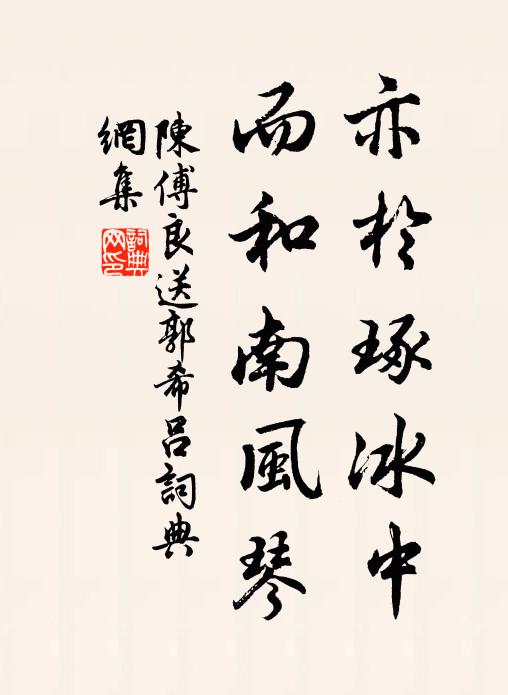 亦於琢冰中
而和南風琴
陳傅良送郭希呂詞典
網集
詞典網印